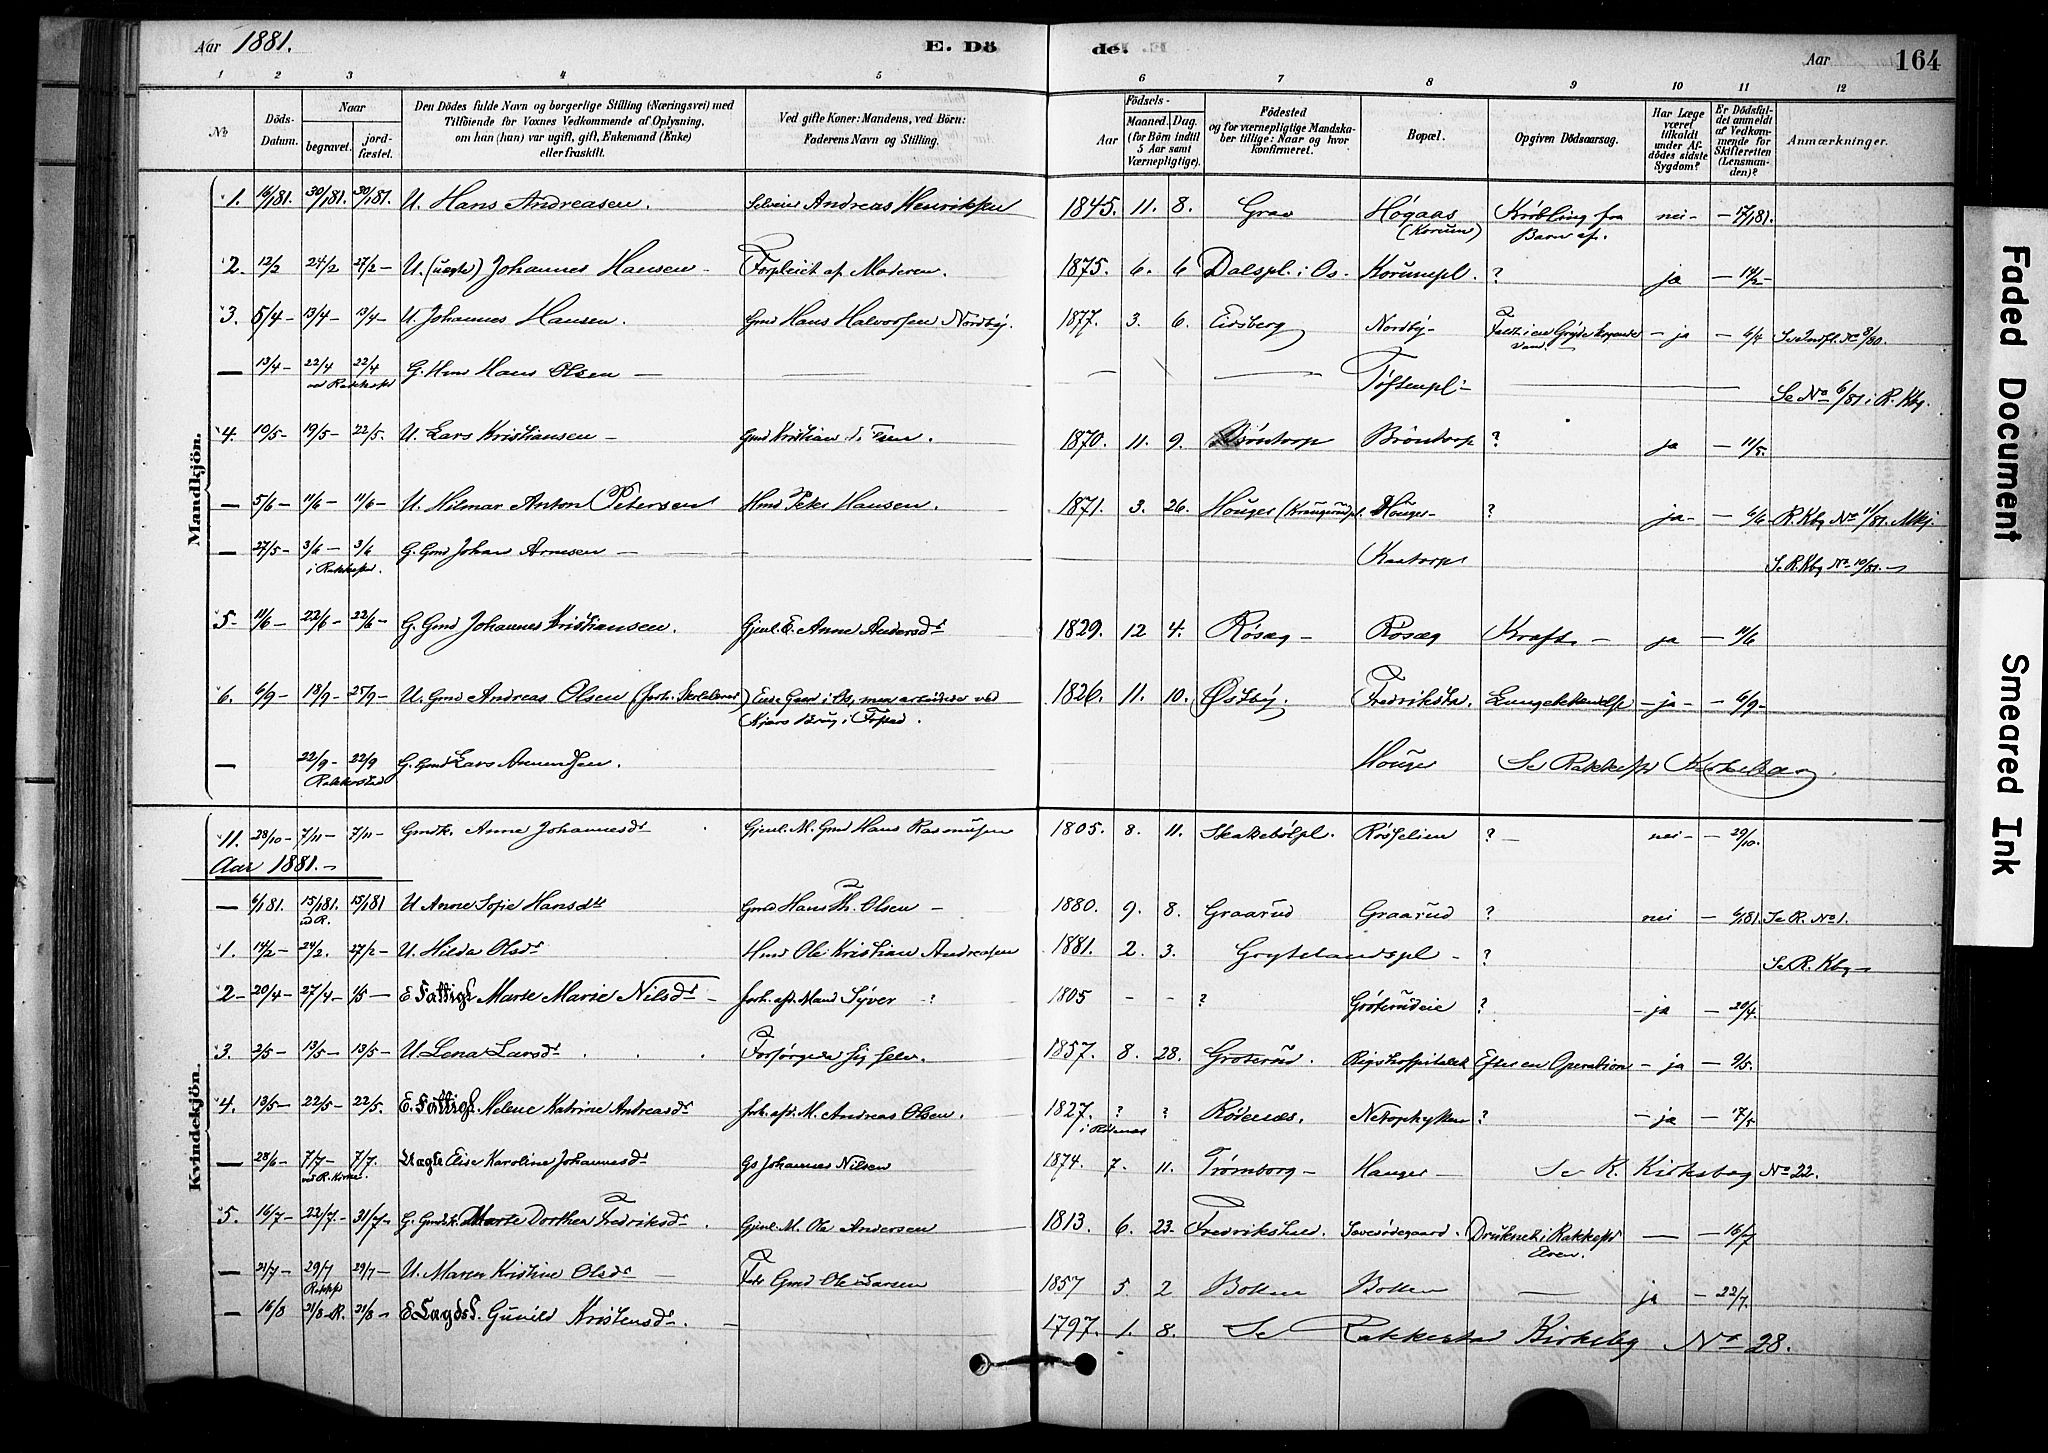 Aar 1881.
E. Dö de.
Aar
164
1 2 3 4 5 6 7 8 9 10 11 12
No
Döds-Datum.
Naar
begravet.
jord-fæstet.
Den Dödes fulde Navn og borgerlige Stilling (Næringsvei) med
Tilföiende for Voxnes Vedkommende af Oplysning,
om han (hun) var ugift, gift, Enkemand (Enke)
eller fraskilt.
Ved gifte Koner: Mandens, ved Börn:
Faderens Navn og Stilling.
Födsels-
Aar
Maaned. Dag.
(for Börn indtil
5 Aar samt
Værnepligtige).
Födested
og for værnepligtige Mandska-
ber tillige: Naar og hvor
konfirmeret.
Bopæl.
Opgiven Dödsaarsag.
Har Læge
været
tilkaldt
under Af-
dödes sidste
Sygdom?
Er Dödsfal-
det anmeldt
af Vedkom-
mende for
Skifteretten
(Lensman-
den)?
Anmærkninger.
Mandkjön.
1. 16/1 81. 30/1 81. 30/1 81. U. Hans Andreasen. Andreas Henriksen 1845. 11. 8. Grav Högaas Kröbling fra nei - 17/1 81.
(Korum) Barn af.
2. 12/2 24/2 27/2 - U. (uægte) Johannes Hansen - Forpleiet af Moderen. 1875. 6. 6 Dalspl. i Os - Korumpl. ? ja - 14/2 -
3. 5/4 - 13/4 - 13/4 - U. Johannes Hansen. Gmd Hans Halvorsen Nordby. 1877. 3. 6. Eidsberg Nordby - Faldt i en Gryde kogende - ja - 6/4
Vand. -
— 13/4 - 22/4 22/4 G. Hmd Hans Olsen — Töftenpl - Se No 6/81 i R. Kbg.
ved Rakkest
4. 10/5 - 19/5 - 22/5. U. Lars Kristiansen - Gmd Kristian 1870. 11. 9. Bröntorp Bröntorp ? ja - 11/5.
— 5/6 - 11/6 11/6 - U. Hilmar Anton Petersen Hmd Peter Hansen. 1871. 3. 26. Houger Houger - ? ja - 6/6 R. Kbg No 11/81. Mkj.
— 27/5 - 3/6 - 3/6 G. Gmd Johan Arnesen — Kaatorp Se R. Kbg No 10/81. -
i Rakkestad.
5 11/6 - 22/6 - 22/6 - G. Gmd Johannes Kristiansen. Gjenl. E. Anne Andersdr 1829. 12 4. Rösæg - Rösæg Kræft - ja - 11/6
6. 6/9 - 18/9 - 25/9 - U. Gmd Andreas Olsen (forh. Skolelærer) Eier Gaar i Os, men arbeidede ved 1826. 11. 10. Östby. Fredriksta. Lungebetændelse - ja - 6/9 -
Kjærs Brug i
— 22/9 - 22/9 G. Gmd Lars Amundsen. Houger Se Rakkest Kirkebog.
Rakkestad
Kvindekjön.
11. 28/10 - 7/11 - 7/11 - Gmdk. Anne Johannesdr Gjenl. M. Gmd Hans Rasmusen 1805. 8. 11. Skakebölpl. Rösselien ? - nei - 29/10.
Aar 1881. -
— 6/1 81. 15/1 81. 15/1 81 U Anne Sofie Hansdtr Gmd Hans Th. Olsen - 1880. 9. 8. Graarud Graarud ? nei - 6/1 81. Se R. No 1.
v R.
1. 14/2 - 24/2. 27/2 - U. Hilda Olsdr Hmd Ole Kristian Andreasen 1881. 2. 3. Grytelandspl - ? Se R. Kbg -
2 - 20/4 - 27/4 - 15 — E Fattigl Marte Marie Nilsdr - forh. afd. Mand Syver - ? 1805 - - ? Gröterudeie ? - ja - 20/4.
3. 2/5 - 13/5 - 13/5 - U. Lena Larsdr Forsörgede sig selv. 1857. 8. 28. Groterud. Rigshospitalet Efter en Operation - ja - 9/5.
4. 13/5 - 22/5 - 22/5. E. Fattigl. Helene Katrine Andreasdr forh. afd. M. Andreas Olsen. 1827. ? ? Rödenæs. ? - ja - 17/5
i Rödenæs
— 28/6 - 7/7 - 7/7. Uægte Elise Karoline Johannesdr Gs Johannes Nilsen 1874. 7. 11. Trömborg - Hauger - Se R. Kirkebog No 22.
ved R. Kirke.
5. 16/7 - 22/7 - 31/7 - G. Gmdk. Marte Dorthea Fredriksdr. Gjenl. M. Ole Andersen 1813. 6. 23 - Fredrikshald. Druknet i Rakkest — - 16/7
Elven.
— 21/7 - 29/7 29/7 - U. Maren Kristine Olsdr - Fdr Gmd Ole Larsen 1857 5 2 Botten Botten — ja - 22/7.
Rakkst
— 16/8 21/8 - R. 21/8 - E Lægdsl. Gunild Kristensdr. - 1797. 1. 8. Se Rakkestad Kirkebog No 28.
Faded Document
Smeared Ink